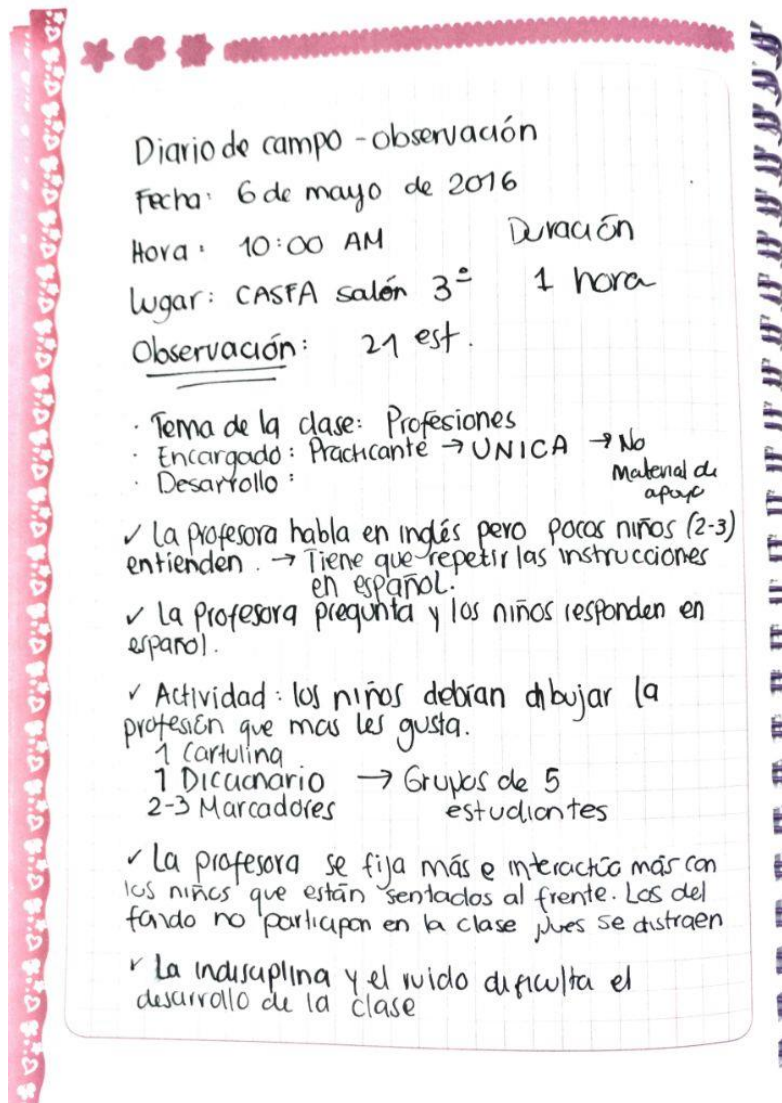 Diario de campo - observación
Fecha: 6 de mayo de 2016
Hora: 10:00 AM Duración
lugar: CASFA salón 3º 1 hora
Observación: 21 est.
· Tema de la clase: Profesiones
· Encargado: Practicante → UNICA → No
Material de
apoyo
· Desarrollo:
✓ La profesora habla en inglés pero pocos niños (2-3)
entienden. → Tiene que repetir las instrucciones
en español.
✓ La profesora pregunta y los niños responden en
español.
✓ Actividad: los niños debían dibujar la
profesión que mas les gusta.
1 Cartulina
1 Diccionario → Grupos de 5
2-3 Marcadores estudiantes
✓ La profesora se fija más e interactúa más con
los niños que están sentados al frente. Los del
fondo no participan en la clase pues se distraen
✓ La indisciplina y el ruido dificulta el
desarrollo de la clase